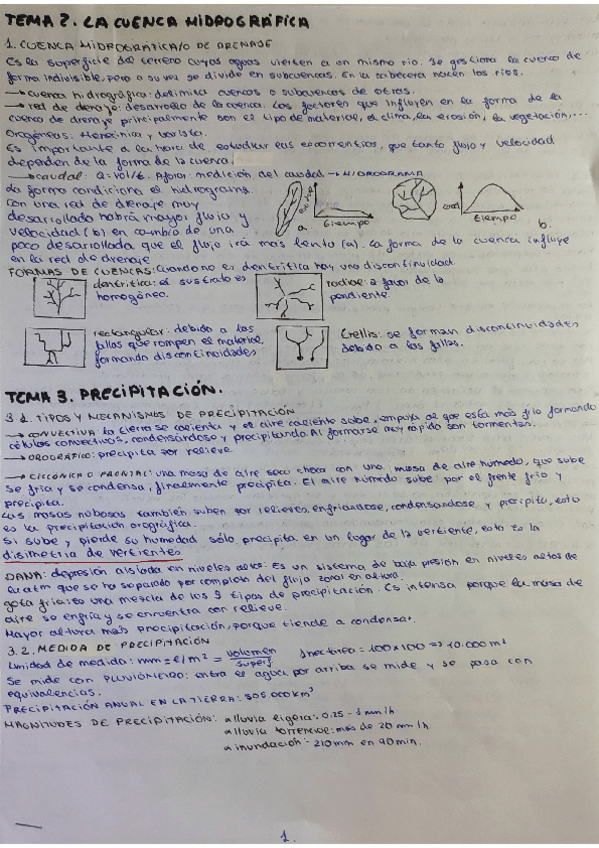 TEMA 2. LA CUENCA HIDROGRÁFICA
1. CUENCA HIDROGRÁFICA/O DE DRENAJE
Es la superficie del terreno cuyas aguas vierten a un mismo río. Se gestiona la cuenca de
forma indivisible, pero a su vez se divide en subcuencas. En la cabecera nacen los ríos.
→ cuenca hidrográfica: delimita cuencas o subcuencas de otras.
→ red de drenaje: desarrollo de la cuenca. Los factores que influyen en la forma de la
cuenca de drenaje principalmente son el tipo de material, el clima, la erosión, la vegetación,...
Orogéneas: Hercínica y varista.
Es importante a la hora de estudiar las escorrentías, que tanto flujo y velocidad
dependen de la forma de la cuenca.
→ caudal: Q=vol/t. Aforar: medición del caudal → HIDROGRAMA
La forma condiciona el hidrograma.
Con una red de drenaje muy
desarrollada habrá mayor flujo y
velocidad (b) en cambio de una
poco desarrollada que el flujo irá más lento (a). La forma de la cuenca influye
en la red de drenaje
tiempo
a
caud
tiempo
b.
FORMAS DE CUENCAS: Cuando no es dentrítica hay una discontinuidad.
dentrítica: el sustrato es
homogéneo.
radial: a favor de la
pendiente
rectangular: debido a las
fallas que rompen el material,
formando discontinuidades
trellis: se forman discontinuidades
debido a las fallas.
TEMA 3. PRECIPITACIÓN.
3.1. TIPOS Y MECANISMOS DE PRECIPITACIÓN
→ CONVECTIVA: la tierra se calienta y el aire caliente sube, empuja al que está más frío formando
células convectivas, condensándose y precipitando. Al formarse muy rápido son tormentas.
→ OROGRÁFICO: precipita por relieve
→ CICLÓNICA O FRONTAL: una masa de aire seco choca con una masa de aire húmedo, que sube
se fría y se condensa, finalmente precipita. El aire húmedo sube por el frente frío y
precipita.
Las masas nubosas también suben por relieves, enfriándose, condensándose y precipita, esto
es la precipitación orográfica.
Si sube y pierde su humedad sólo precipita en un lugar de la vertiente, esto es la
disimetría de vertientes
DANA: depresión aislada en niveles altos. Es un sistema de baja presión en niveles altos de
la atm que se ha separado por completo del flujo zonal en altura.
gota fría: es una mezcla de los 3 tipos de precipitación. Es intensa porque la masa de
aire se enfría y se encuentra con relieve.
Mayor altura más precipitación, porque tiende a condensar.
3.2. MEDIDA DE PRECIPITACIÓN
Unidad de medida: mm = l/m² = volumen/superf. 1 hectárea = 100 x 100 => 10.000 m²
Se mide con PLUVIÓMETRO: entra el agua por arriba se mide y se pasa con
equivalencias.
PRECIPITACIÓN ANUAL EN LA TIERRA: 505 000 km³
MAGNITUDES DE PRECIPITACIÓN: lluvia ligera: 0.25 - 1 mm/h
lluvia torrencial: más de 20 mm/h
inundación: 210 mm en 90 min.
1.